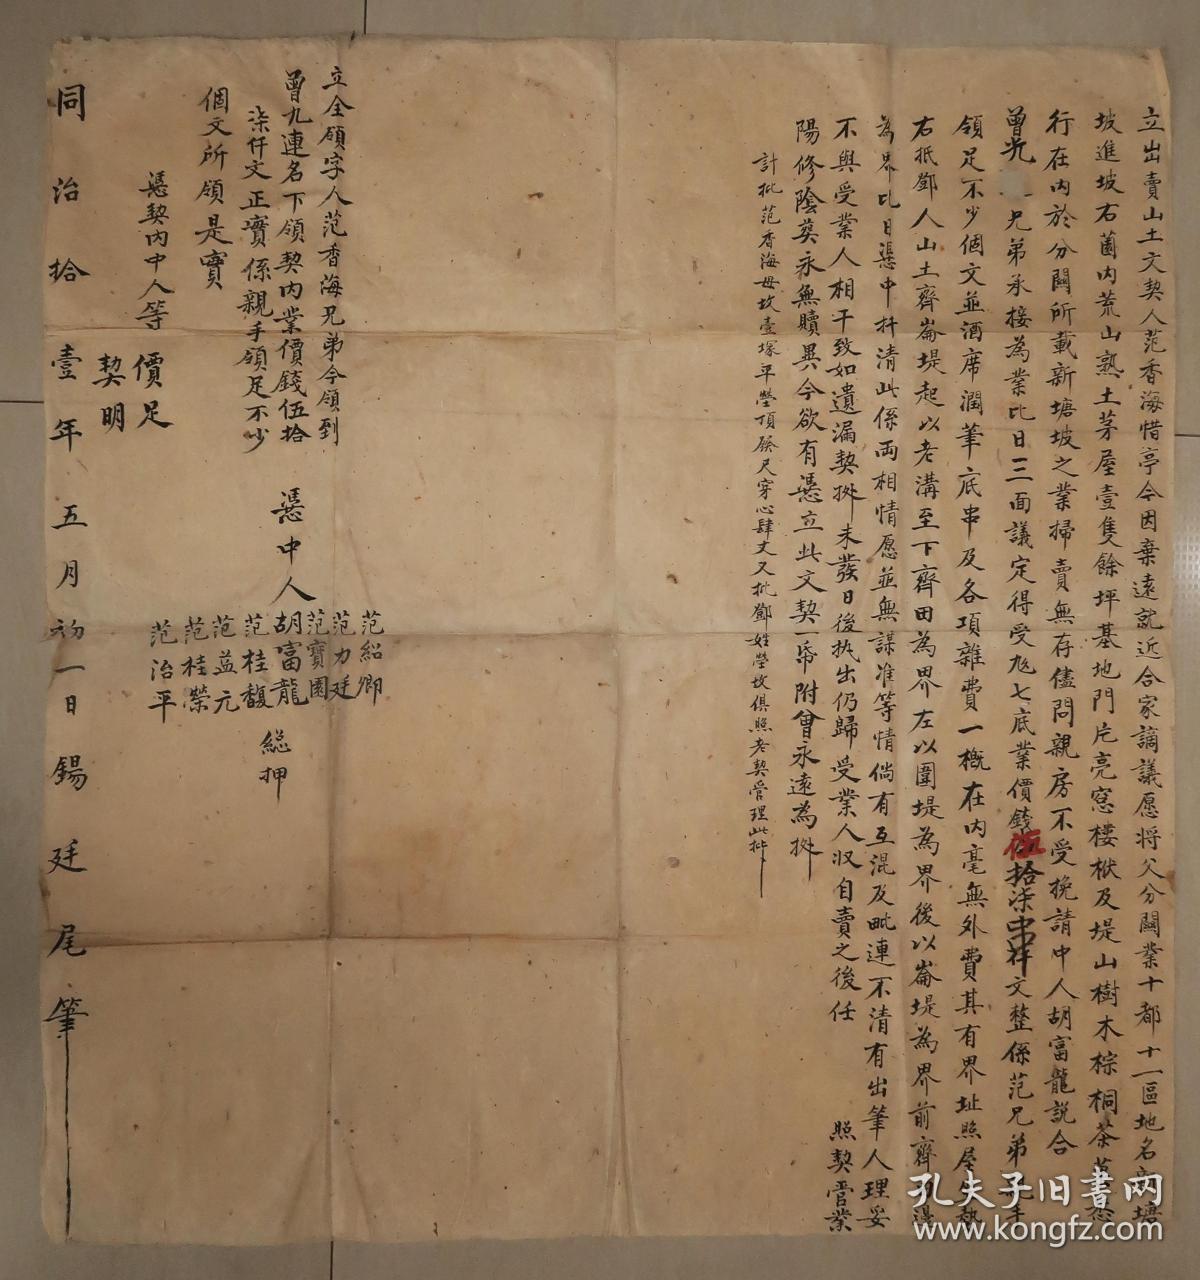 立出賣山土文契人范香海惜亭今因棄遠就近合家謫議愿將父分關業十都十一區地名新塘
坡進坡右園内荒山熟土茅屋壹隻餘坪基地門片亮窓樓栿及堤山樹木棕桐茶
行在内於分關所載新塘坡之業掃賣無存儘問親房不受挽請中人胡富龍説合
曾光 兄弟承接為業比日三面議定得受九七底業價錢伍拾柒串文整係范兄弟手
領足不少個文並酒席潤筆底串及各項雜費一概在内毫無外費其有界址照屋
右抵鄧人山土齊崙堤起以老溝至下齊田為界左以圍堤為界後以崙堤為界前齊
為界比日憑中扦清此係両相情愿並無謀准等情倘有互混及毗連不清有出筆人理妥
不與受業人相干致如遺漏契㧣未發日後执出仍歸受業人収自賣之後任 照契营業
陽修陰葬永無贖異今欲有憑立此文契一帋附曾永遠為㧣
計批范香海母坟壹塚平塋頂發尺穿心肆丈又批鄧姓塋坟俱照老契管理此批
立全領字人范香海兄弟今領到
曾九連名下領契内業價錢伍拾
柒仟文正實係親手領足不少
個文所領是實
憑契内中人等
價足
契明
憑中人
范紹卿
范力廷
范寶園
胡富龍
范桂馥
范益元
范桂榮
范治平
總押
同治拾壹年五月初一日錫廷尾筆
孔夫子旧書网
www.kongfz.com